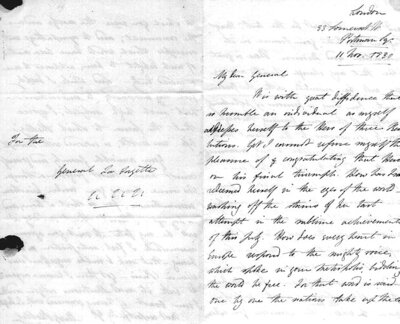 For the
General La Fayette
London
33 Somerset St.
Portman Sq.
11 Nov. 1830
My dear General
It is with great diffidence that
so humble an individual as myself
addresses herself to the Hero of three Revo
lutions. Yet I cannot refuse myself the
pleasure of congratulating that Hero
on his final triumph. How has
redeemed herself in the eyes of the world
washing off the stains of her last
attempt in the sublime achievements
of this July. How does every heart in
Europe respond to the mighty voice,
which spoke in your metropolis bidding
the world be free. For that word is said
one by one the nations take up the